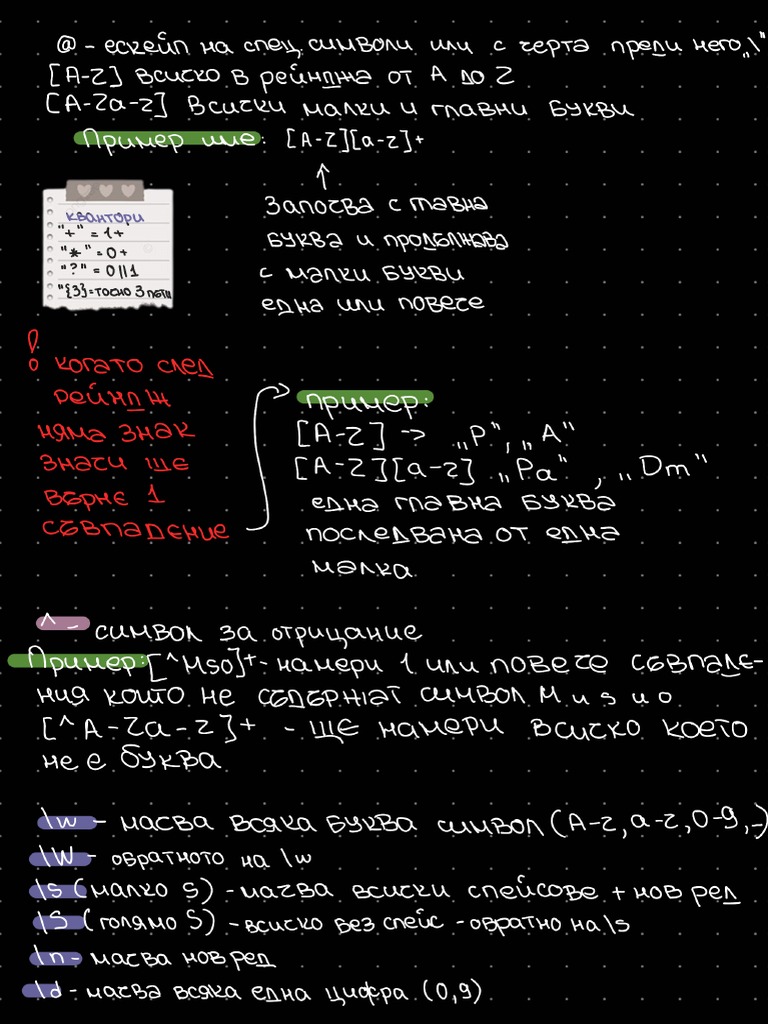 @ - ескейп на спец. символи или с черта преди него „\"
[A-Z] всичко в рейнджа от A до Z
[A-Za-z] всички малки и главни букви
Пример ите: [A-Z][a-z]+
↑
Започва с главна
буква и продължава
с малки букви
една или повече
квантори
"+" = 1+
"*" = 0+
"?" = 0||1
"{3}=точно 3 пъти
! когато след
рейндж
няма знак
значи ще
върне 1
съвпадение
пример:
[A-Z] -> „P", „A"
[A-Z][a-z] „Pa", „Dm"
една главна буква
последвана от една
малка
^ - символ за отрицание
Пример: [^Mso]+ - намери 1 или повече съвпаде-
ния които не съдържат символ M и s и o
[^A-Za-z]+ - ще намери всичко което
не е буква
\w - мачва всяка буква символ (A-z, a-z, 0-9, _)
\W - обратното на \w
\s (малко s) - мачва всички спейсове + нов ред
\S (голямо S) - всичко без спейс - обратно на \s
\n - мачва нов ред
\d - мачва всяка една цифра (0,9)